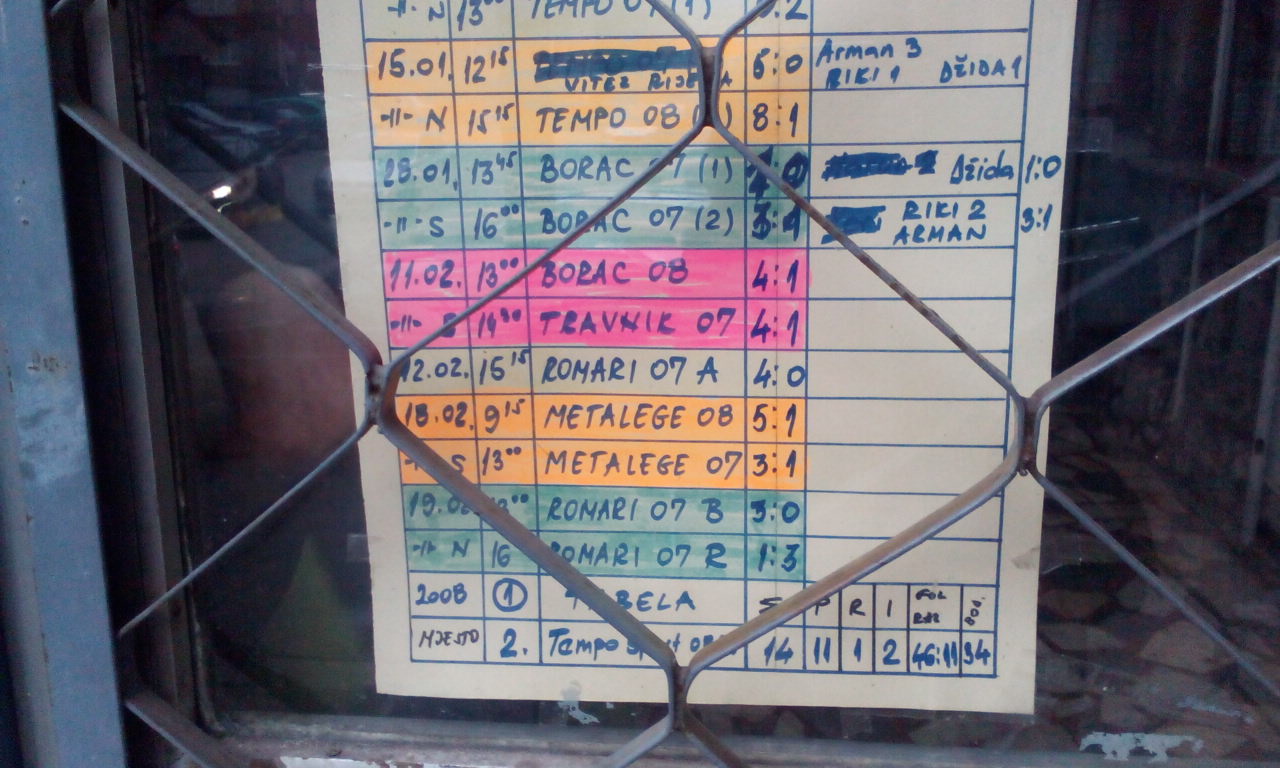 -11- N 13⁰⁰ TEMPO 07 (1) :2
15.01. 12¹⁵ VITEZ 6:0 Arman 3
RIKI 1 DŽIDA 1
-11- N 15¹⁵ TEMPO 08 8:1
28.01. 13⁴⁵ BORAC 07 (1) Džida 1:0
-11- S 16⁰⁰ BORAC 07 (2) RIKI 2 3:1
ARMAN
11.02. 13⁰⁰ BORAC 08 4:1
-11- S 14³⁰ TRAVNIK 07 4:1
12.02. 15¹⁵ ROMARI 07 A 4:0
18.02. 9¹⁵ METALEGE 08 5:1
-11- S 13⁰⁰ METALEGE 07 3:1
19.02 ROMARI 07 B 3:0
-11- N 16 ROMARI 07 R 1:3
2008 1 TABELA S P R I GOL RAZ BOD.
MJESTO 2. Tempo sport 08 14 11 1 2 46:11 34